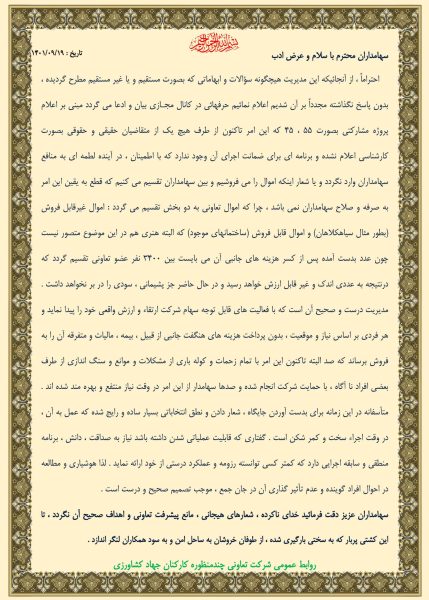 بسم الله الرحمن الرحیم
تاریخ : ۱۴۰۱/۰۹/۱۹
سهامداران محترم با سلام و عرض ادب
احتراماً ، از آنجائیکه این مدیریت هیچگونه سؤالات و ابهاماتی که بصورت مستقیم و یا غیر مستقیم مطرح گردیده ،
بدون پاسخ نگذاشته مجدداً بر آن شدیم اعلام نمائیم حرفهائی در کانال مجازی بیان و ادعا می گردد مبنی بر اعلام
پروژه مشارکتی بصورت ۵۵ ، ۴۵ که این امر تاکنون از طرف هیچ یک از متقاضیان حقیقی و حقوقی بصورت
کارشناسی اعلام نشده و برنامه ای برای ضمانت اجرای آن وجود ندارد که با اطمینان ، در آینده لطمه ای به منافع
سهامداران وارد نگردد و یا شعار اینکه اموال را می فروشیم و بین سهامداران تقسیم می کنیم که قطع به یقین این امر
به صرفه و صلاح سهامداران نمی باشد ، چرا که اموال تعاونی به دو بخش تقسیم می گردد : اموال غیرقابل فروش
(بطور مثال سیاهکلاهان) و اموال قابل فروش (ساختمانهای موجود) که البته هنری هم در این موضوع متصور نیست
چون عدد بدست آمده پس از کسر هزینه های جانبی آن می بایست بین ۳۴۰۰ نفر عضو تعاونی تقسیم گردد که
درنتیجه به عددی اندک و غیر قابل ارزش خواهد رسید و در حال حاضر جز پشیمانی ، سودی را در بر نخواهد داشت .
مدیریت درست و صحیح آن است که با فعالیت های قابل توجه سهام شرکت ارتقاء و ارزش واقعی خود را پیدا نماید و
هر فردی بر اساس نیاز و موقعیت ، بدون پرداخت هزینه های هنگفت جانبی از قبیل ، بیمه ، مالیات و متفرقه آن را به
فروش برساند که صد البته تاکنون این امر با تمام زحمات و کوله باری از مشکلات و موانع و سنگ اندازی از طرف
بعضی افراد نا آگاه ، با حمایت شرکت انجام شده و صدها سهامدار از این امر در وقت نیاز منتفع و بهره مند شده اند .
متأسفانه در این زمانه برای بدست آوردن جایگاه ، شعار دادن و نطق انتخاباتی بسیار ساده و رایج شده که عمل به آن ،
در وقت اجراء سخت و کمر شکن است . گفتاری که قابلیت عملیاتی شدن داشته باشد نیاز به صداقت ، دانش ، برنامه
منطقی و سابقه اجرایی دارد که کمتر کسی توانسته رزومه و عملکرد درستی از خود ارائه نماید . لذا هوشیاری و مطالعه
در احوال افراد گوینده و عدم تأثیر گذاری آن در جان جمع ، موجب تصمیم صحیح و درست است .
سهامداران عزیز دقت فرمائید خدای ناکرده ، شعارهای هیجانی ، مانع پیشرفت تعاونی و اهداف صحیح آن نگردد ، تا
این کشتی پربار که به سختی بارگیری شده ، از طوفان خروشان به ساحل امن و به سود همکاران لنگر اندازد .
روابط عمومی شرکت تعاونی چندمنظوره کارکنان جهاد کشاورزی